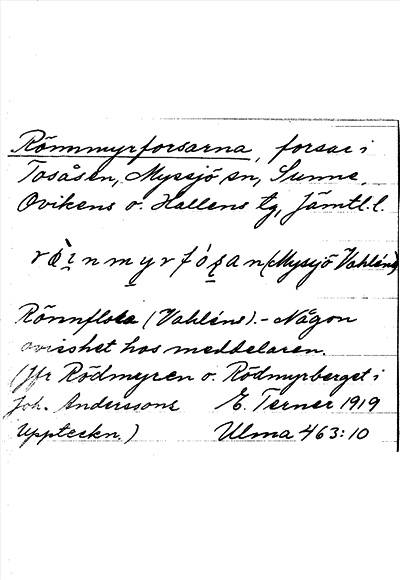 Rönnmyrforsarna, forsar i
Tosåsen, Myssjö sn, Sunne,
Ovikens o. Hallens tg, Jämtl. l.
(Myssjö Vahléns)
Rönnflota (Vahléns). - Någon
ovisshet hos meddelaren.
(Jfr Rödmyren o. Rödmyrberget i
Joh. Anderssons E. Terner 1919
uppteckn.) Ulma 463:10